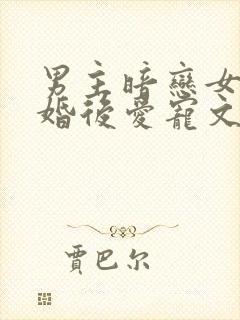 男主暗戀女
婚後愛寵文
賈巴尔